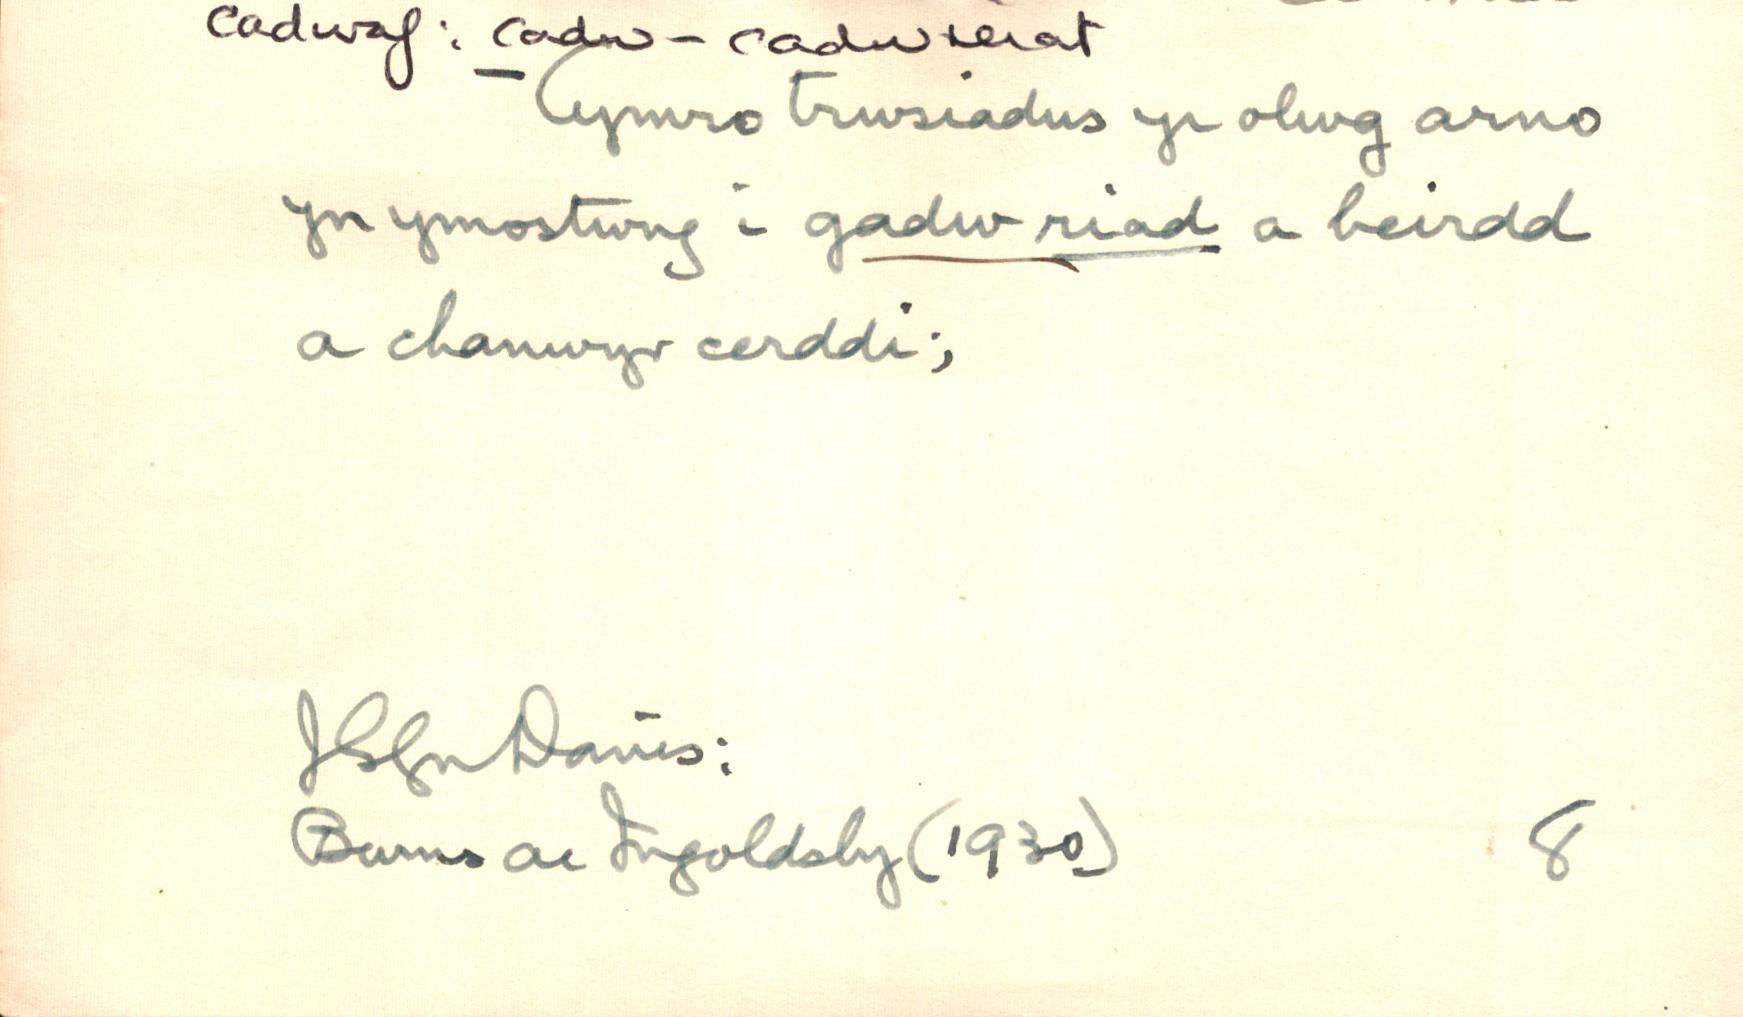 cadwaf: cadw - cadwreiat
Cymro trwsiadus yr olwg arno
yn ymostwng i gadw-riad a beirdd
a chanwyr cerddi;
J Glyn Davies:
Burns ac Ingoldsby (1930) 8